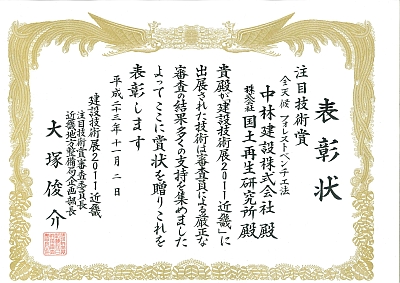 表彰状
注目技術賞
全天候フォレストベンチ工法
中林建設株式会社 殿
株式会社国土再生研究所 殿
貴殿が「建設技術展2011近畿」に
出展された技術は審査員による厳正な
審査の結果多くの支持を集めました
よってここに賞状を贈りこれを
表彰します
平成二十三年十一月二日
建設技術展2011近畿
注目技術賞審査委員長
近畿地方整備局企画部長
大塚俊介